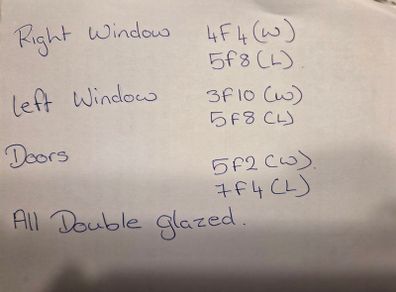 Right Window 4F4 (W)
5F8 (L)
Left Window 3F10 (W)
5F8 (L)
Doors 5F2 (W).
7F4 (L)
All Double glazed.